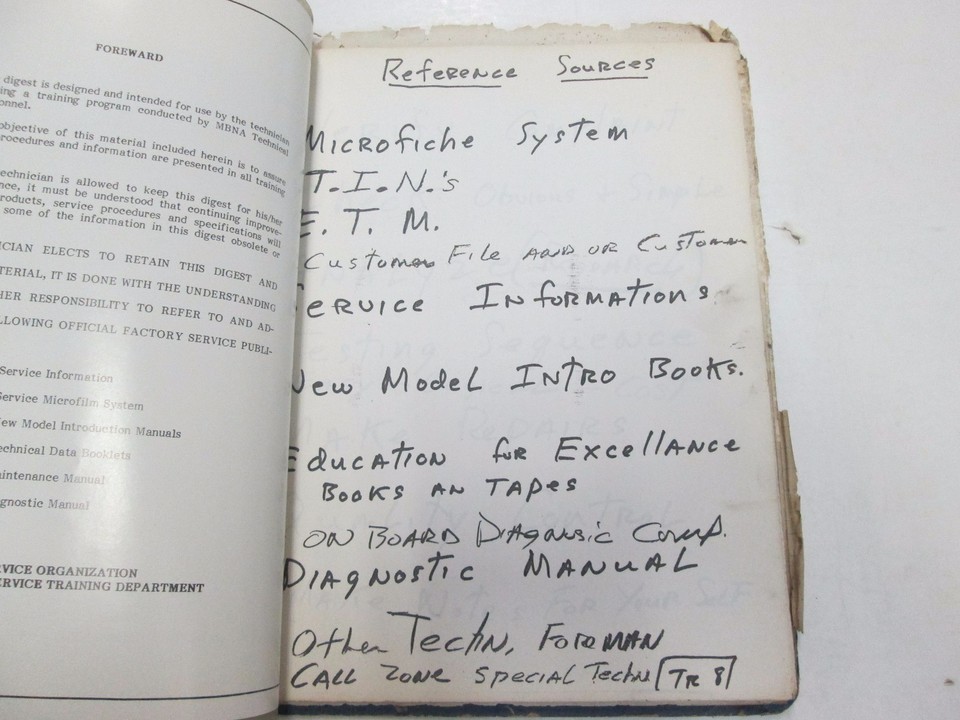 FOREWARD
digest is designed and intended for use by the technician
ing a training program conducted by MBNA Technical
onnel.
objective of this material included herein is to assure
rocedures and information are presented in all training
echnician is allowed to keep this digest for his/her
nce, it must be understood that continuing improve-
roducts, service procedures and specifications will
some of the information in this digest obsolete or
ICIAN ELECTS TO RETAIN THIS DIGEST AND
TERIAL, IT IS DONE WITH THE UNDERSTANDING
HER RESPONSIBILITY TO REFER TO AND AD-
LLOWING OFFICIAL FACTORY SERVICE PUBLI-
Service Information
Service Microfilm System
ew Model Introduction Manuals
echnical Data Booklets
aintenance Manual
gnostic Manual
RVICE ORGANIZATION
ERVICE TRAINING DEPARTMENT
Reference Sources
Microfiche System
T.I.N.'s
E. T. M.
Customer File and or Customer
Service Informations
New Model Intro Books.
Education for Excellance
Books an Tapes
On Board Diagnosic Comp.
Diagnostic Manual
Other Techn, Foreman
Call Zone Special Techn TR 8